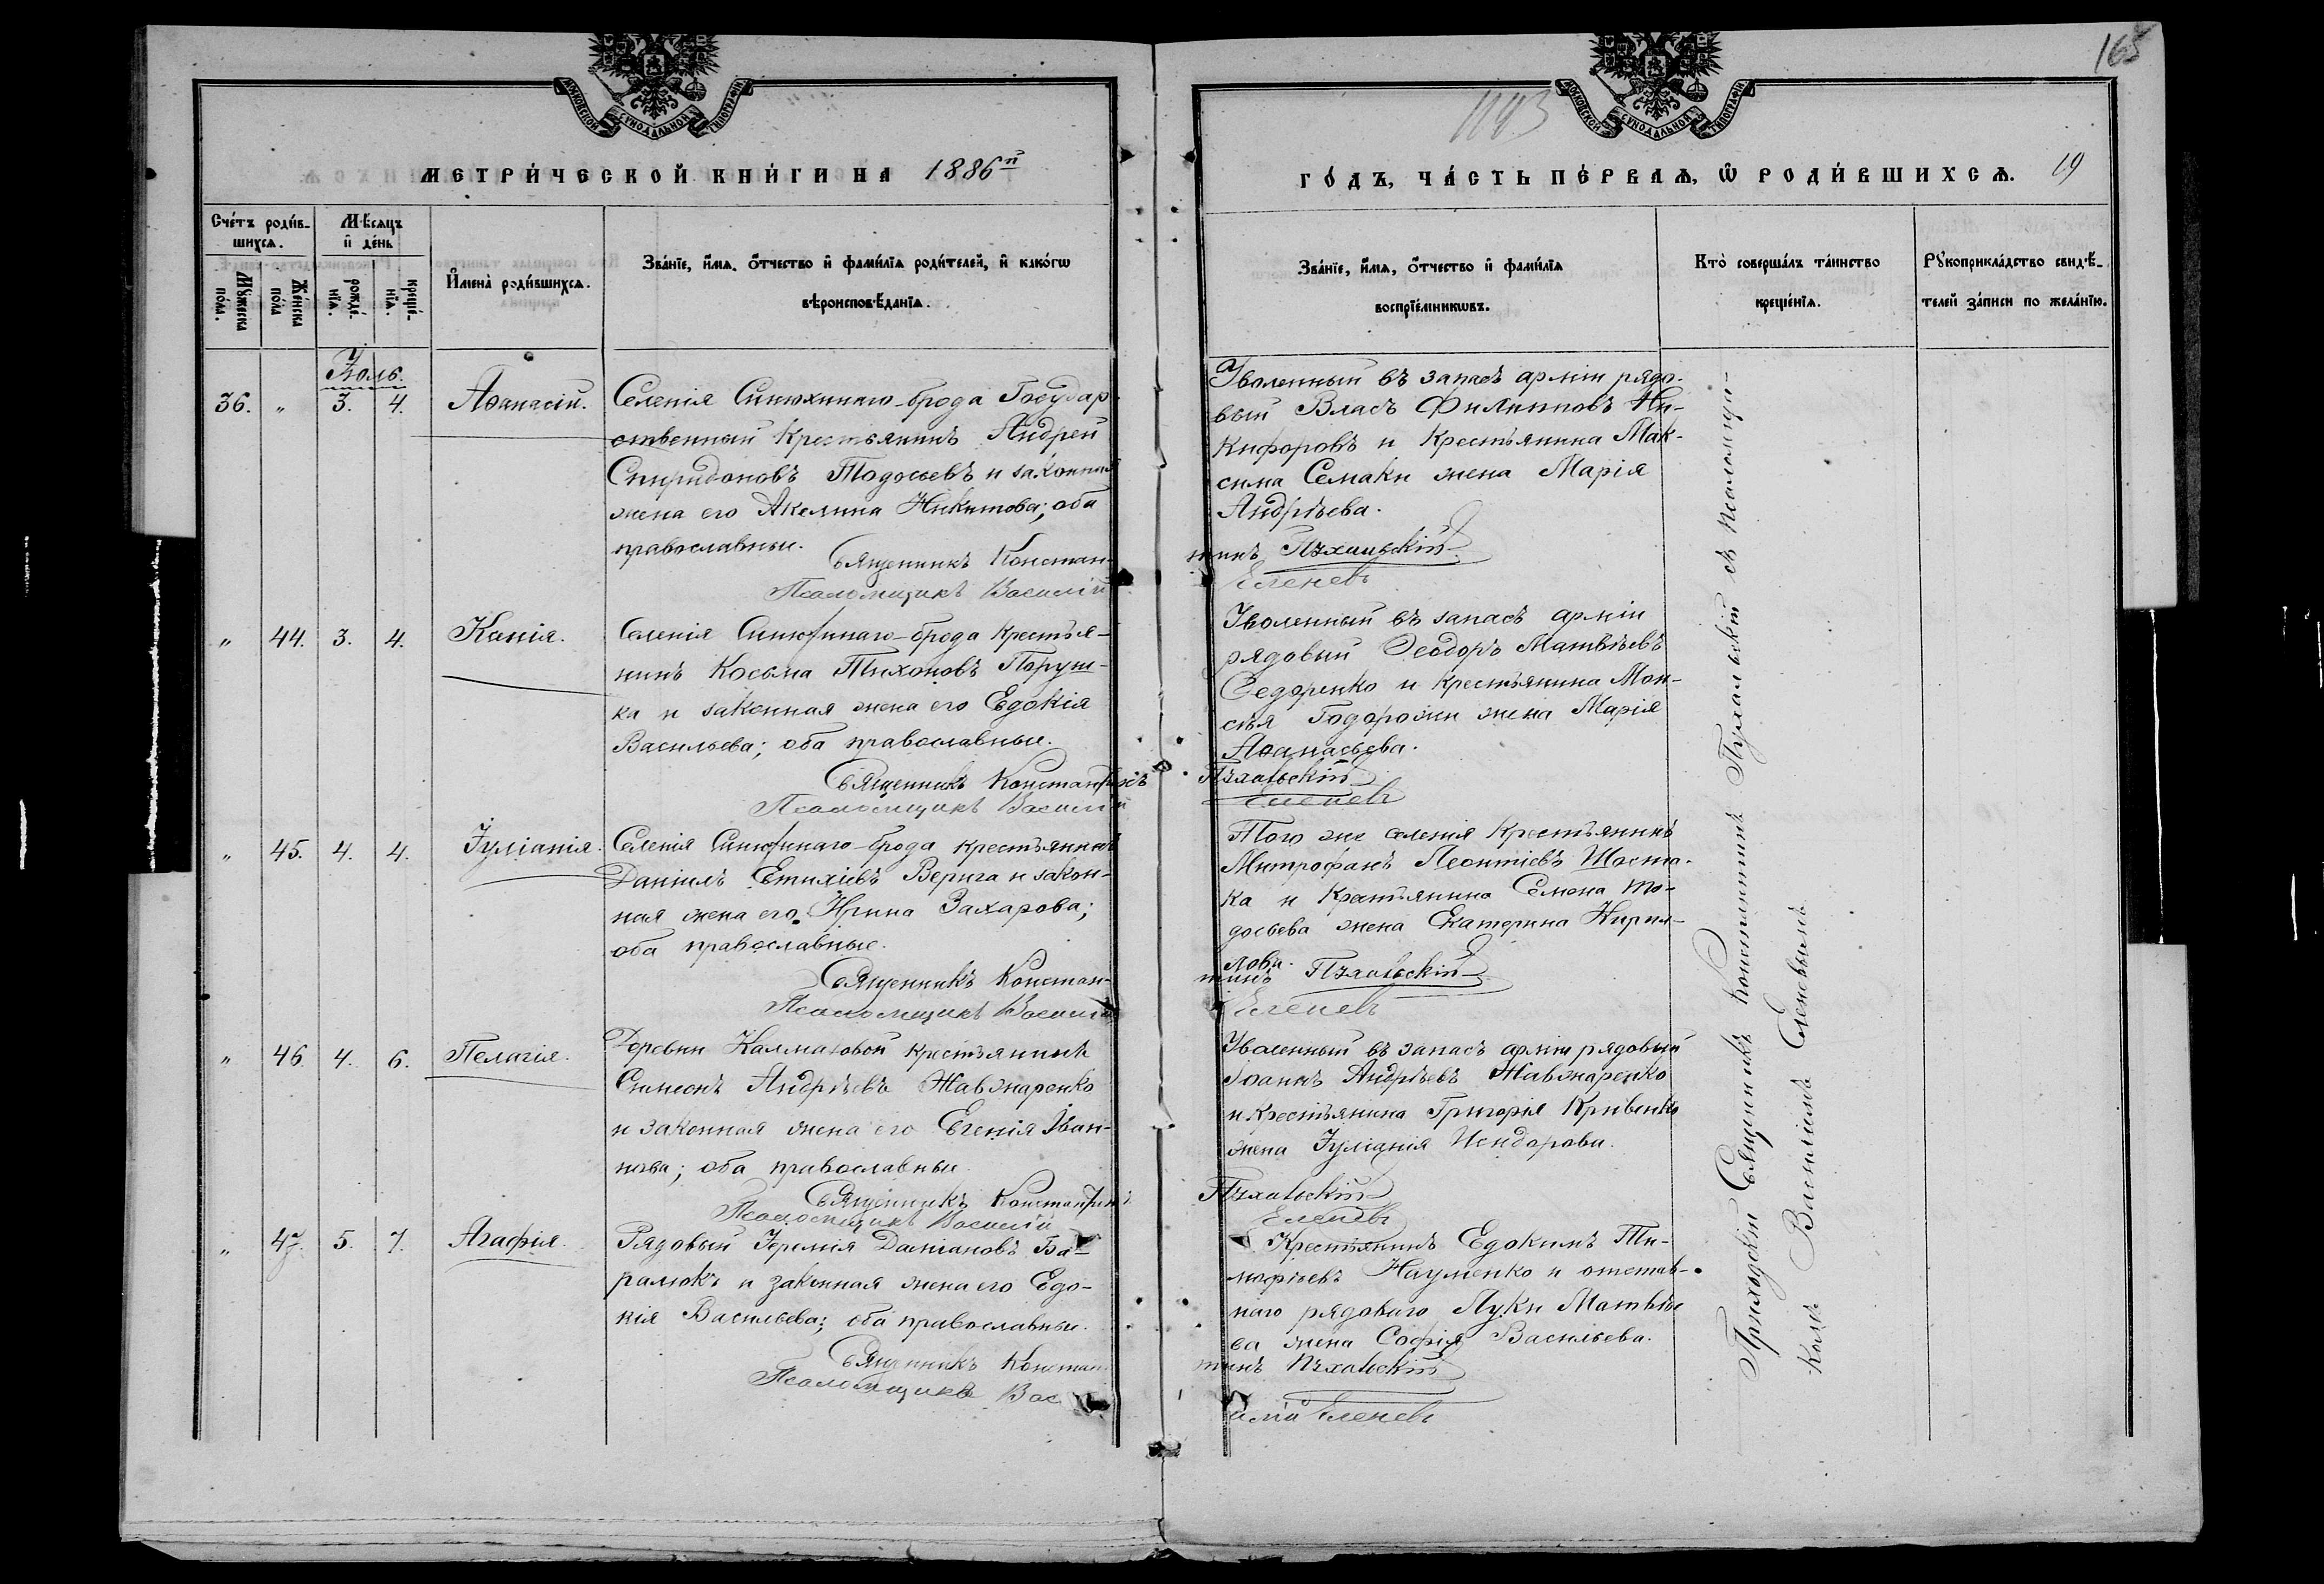 165
1143
МОСКОВСКОЙ СѴНОДАЛЬНОЙ ТИПОГРАФІИ
МЕТРИ́ЧЕСКОЙ КНИ́ГИ НА 1886й
Сче́тъ роди́в-
шихсѧ.
Мѣ́сѧцъ
и҆ де́нь
Мꙋ́жеска по́ла.
Же́нска по́ла
рожде́-
нїѧ.
креще́-
нїѧ.
И҆мена̀ роди́вшихсѧ.
Зва́нїе, и҆́мѧ, ѻ҆́тчество и҆ фами́лїѧ роди́телей, и҆ како́гѡ
вѣроисповѣ́данїѧ.
Іюль.
36. „ 3. 4. Аѳанасій.
Селенія Синюхинаго-брода Государ-
ственный Крестьянинъ Андрей
Спиридоновъ Тодосьевъ и законная
жена его Акелина Никитова; оба
православные.
Священникъ Констан-
Псаломщикъ Василій
„ 44. 3. 4. Ксенія.
Селенія Синюхинаго-брода Крестья-
нинъ Косьма Тихоновъ Паруш-
ка и законная жена его Евдокія
Васильева; оба православные.
Священникъ Константинъ
Псаломщикъ Василій
„ 45. 4. 4. Іуліанія.
Селенія Синюхинаго-брода крестьянинъ
Даніилъ Евтихіевъ Верига и закон-
ная жена его Ирина Захарова;
оба православные.
Священникъ Констан-
Псаломщикъ Василій
„ 46. 4. 6. Пелагія.
Деревни Калмазовой крестьянинъ
Симеонъ Андреевъ Жавжаренко
и законная жена его Евгенія Іван-
нова; оба православные.
Священникъ Константинъ
Псаломщикъ Василій
„ 47. 5. 7. Агафія.
Рядовый Іеремія Даміановъ Ба-
ралюкъ и законная жена его Евдо-
кія Васильева; оба православные.
Священникъ Констан-
Псаломщикъ Вас
МОСКОВСКОЙ СѴНОДАЛЬНОЙ ТИПОГРАФІИ
ГО́ДЪ, ЧА́СТЬ ПЕ́РВАѦ, Ѽ РОДИ́ВШИХСѦ. 19
Зва́нїе, и҆́мѧ, ѻ҆́тчество и҆ фами́лїѧ
воспрїе́мникѡвъ.
Кто̀ соверша́лъ та́инство
креще́нїѧ.
Рꙋкоприкла́дство свидѣ́-
телей за́писи по жела́нїю.
Уволенный въ запасъ арміи рядо-
вый Власъ Филипповъ Ни-
кифоровъ и Крестьянина Мак-
сима Семаки жена Марія
Андреева.
тинъ Пухальскій
Еленевъ
Уволенный въ запасъ арміи
рядовый Ѳеодоръ Матвѣевъ
Федоренко и крестьянина Мои-
сея Годорожи жена Марія
Аѳанасьева.
Пухальскій
Еленевъ
Того же селенія Крестьянинъ
Митрофанъ Леонтіевъ Шоста-
ка и Крестьянина Семена То-
досьева жена Екатерина Кирил-
лова.
тинъ Пухальскій
Еленевъ
Уволенный въ запасъ арміи рядовый
Іоаннъ Андреевъ Жавжаренко
и Крестьянина Григорія Кривенко
жена Іуліанія Исидорова.
Пухальскій
Еленевъ
Крестьянинъ Евдокимъ Ти-
моѳіевъ Науменко и отстав-
наго рядоваго Луки Матвѣе
ва жена Софія Васильева.
тинъ Пухальскій
илій Еленевъ
Приходскій Священникъ Константинъ Пухальскій съ псаломщи-
комъ Василіемъ Еленевымъ